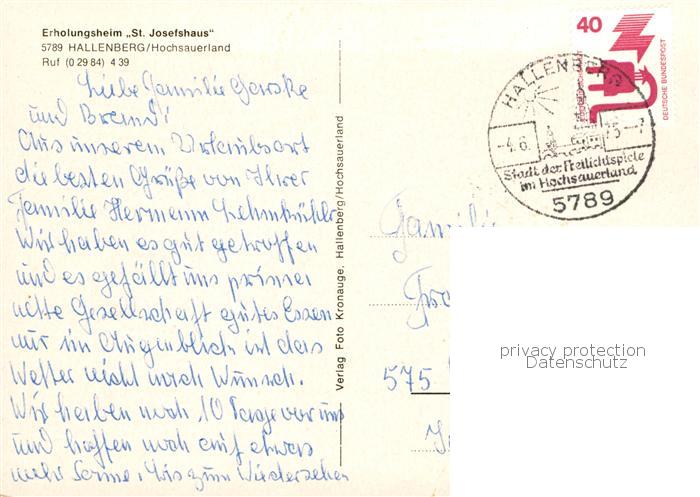 Erholungsheim „St. Josefshaus"
5789 HALLENBERG/Hochsauerland
Ruf (0 29 84) 4 39
Liebe Familie
und
Aus unserem Urlaubsort
die besten Grüße von Ihrer
Familie Hermann
Wir haben es gut getroffen
und es gefällt uns prima
nette Gesellschaft gutes Essen
nur im Augenblick ist das
Wetter nicht nach Wunsch.
Wir haben noch 10 Tage vor uns
und hoffen noch auf etwas
mehr Sonne, bis zum Wiedersehen
Verlag Foto Kronauge. Hallenberg/Hochsauerland
40
DEUTSCHE BUNDESPOST
HALLENBERG
-4.6.
Stadt der Freilichtspiele
im Hochsauerland
5789
Familie
575
privacy protection
Datenschutz